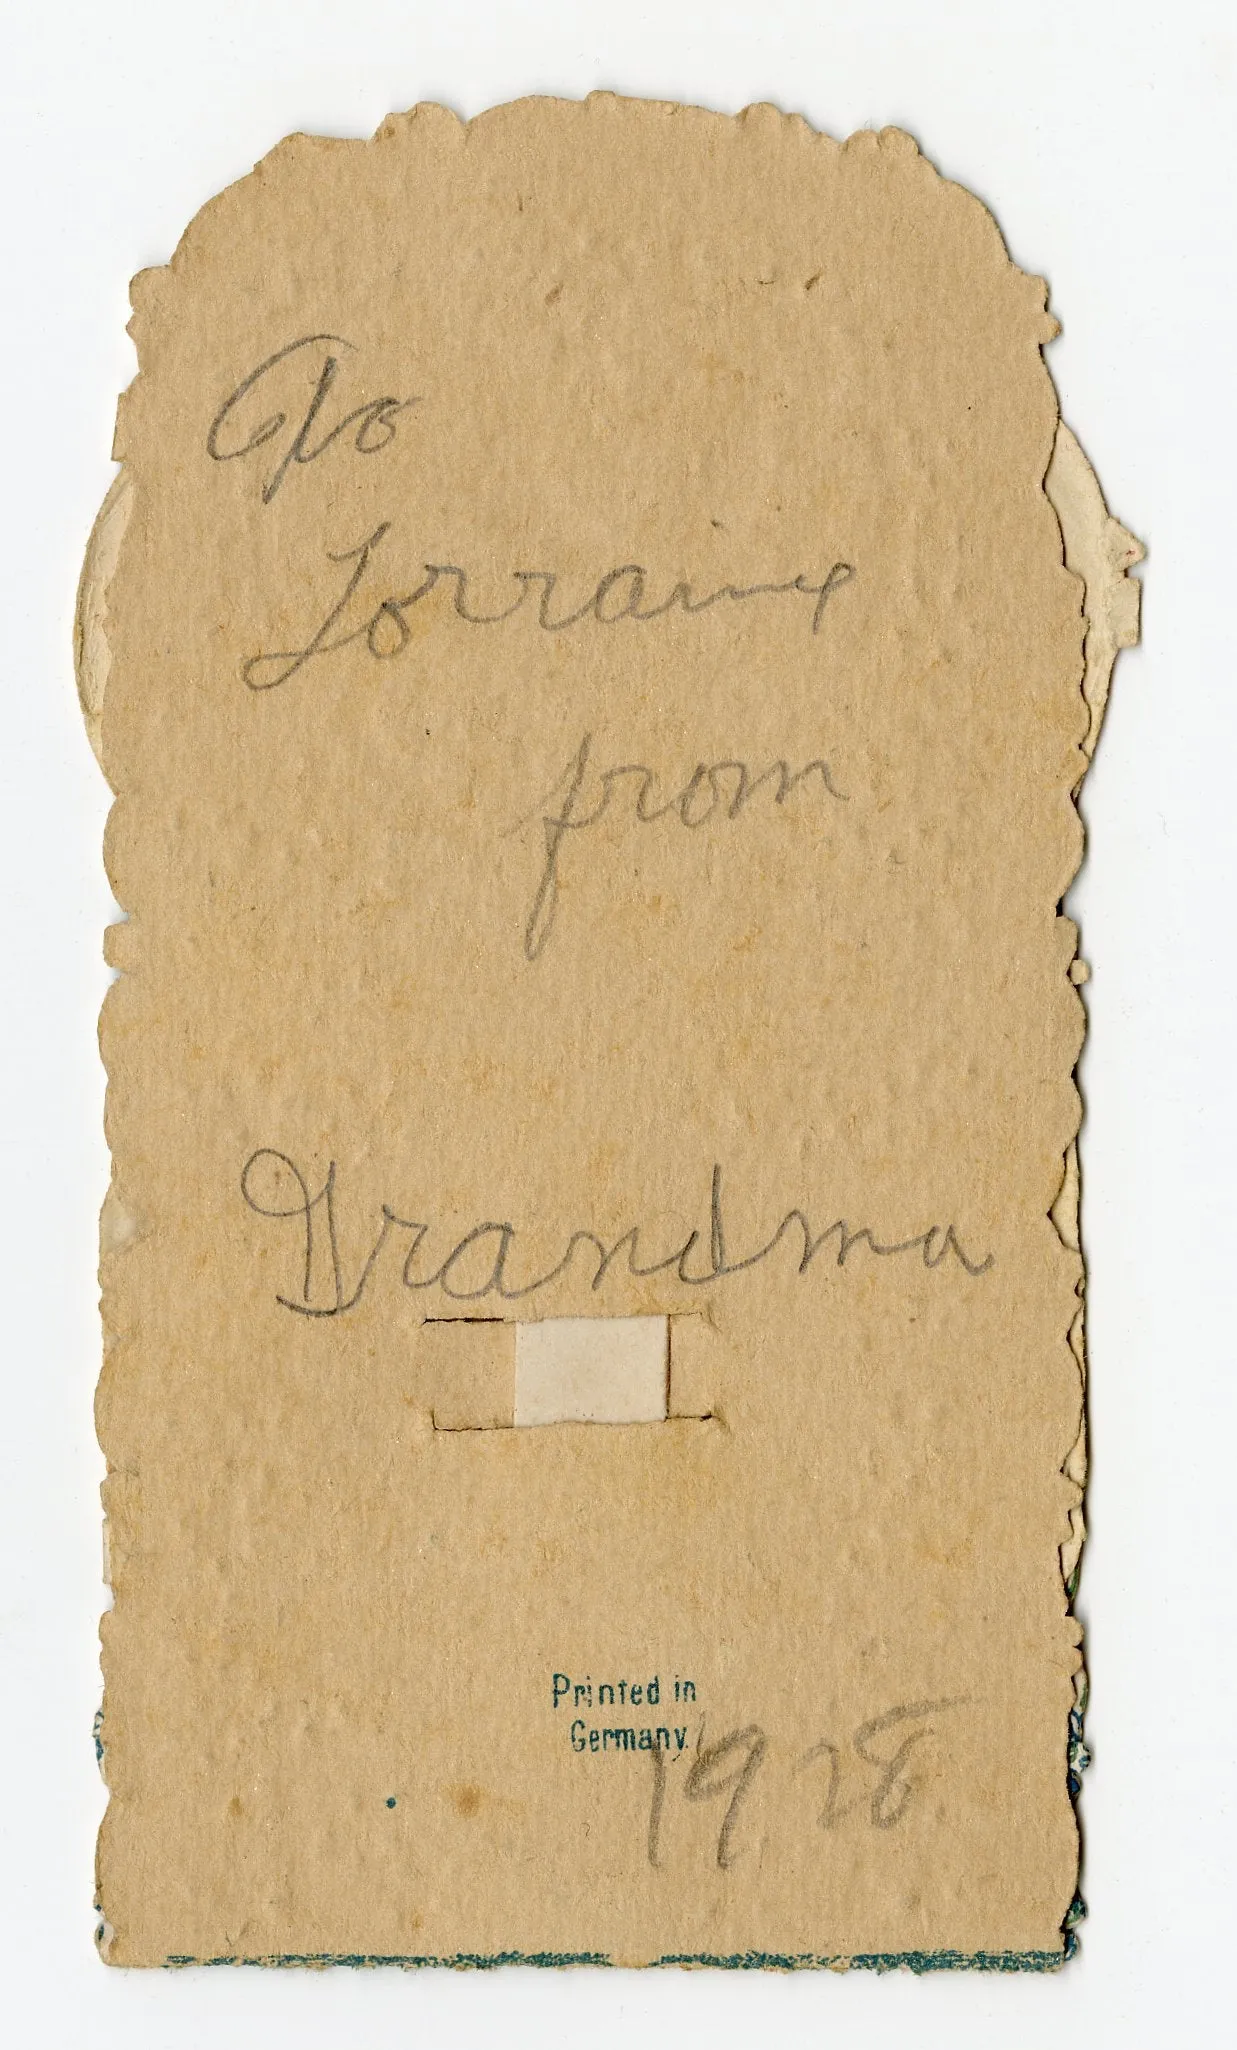 To
Lorraine
from
Grandma
Printed in
Germany.
1928